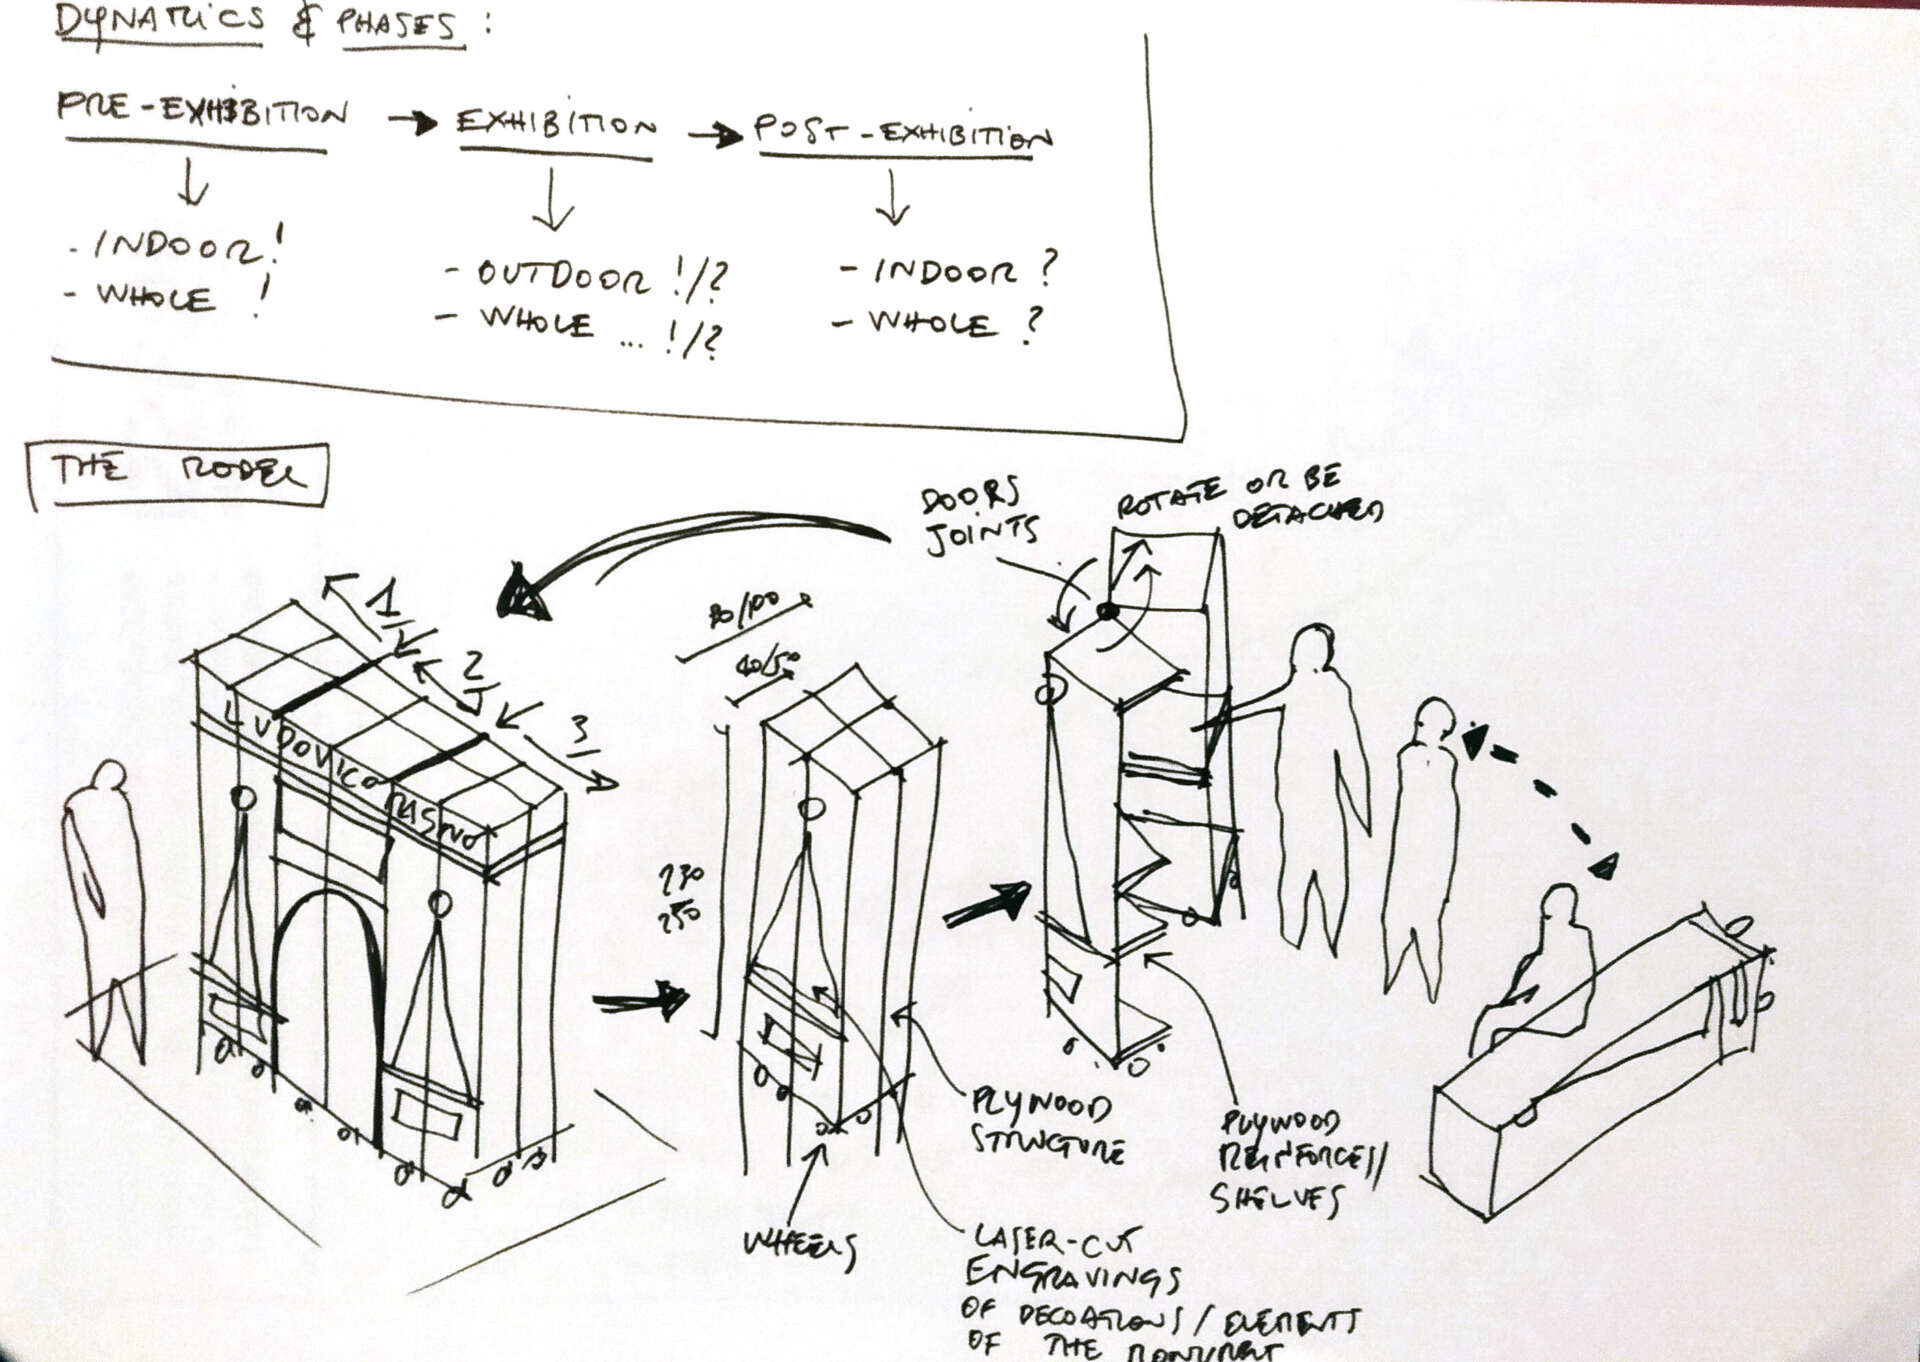 DYNAMICS & PHASES :
PRE-EXHIBITION → EXHIBITION → POST-EXHIBITION
- INDOOR !
- WHOLE !
- OUTDOOR !/?
- WHOLE ... !/?
- INDOOR ?
- WHOLE ?
THE MODEL
DOORS
JOINTS
ROTATE OR BE
DETACHED
1
2
3
LUDOVICO MAGNO
80/100
40/50
230
250
PLYWOOD
STRUCTURE
PLYWOOD
REINFORCES//
SHELVES
WHEELS
LASER-CUT
ENGRAVINGS
OF DECOATIONS / ELEMENTS
OF THE MONUMENT